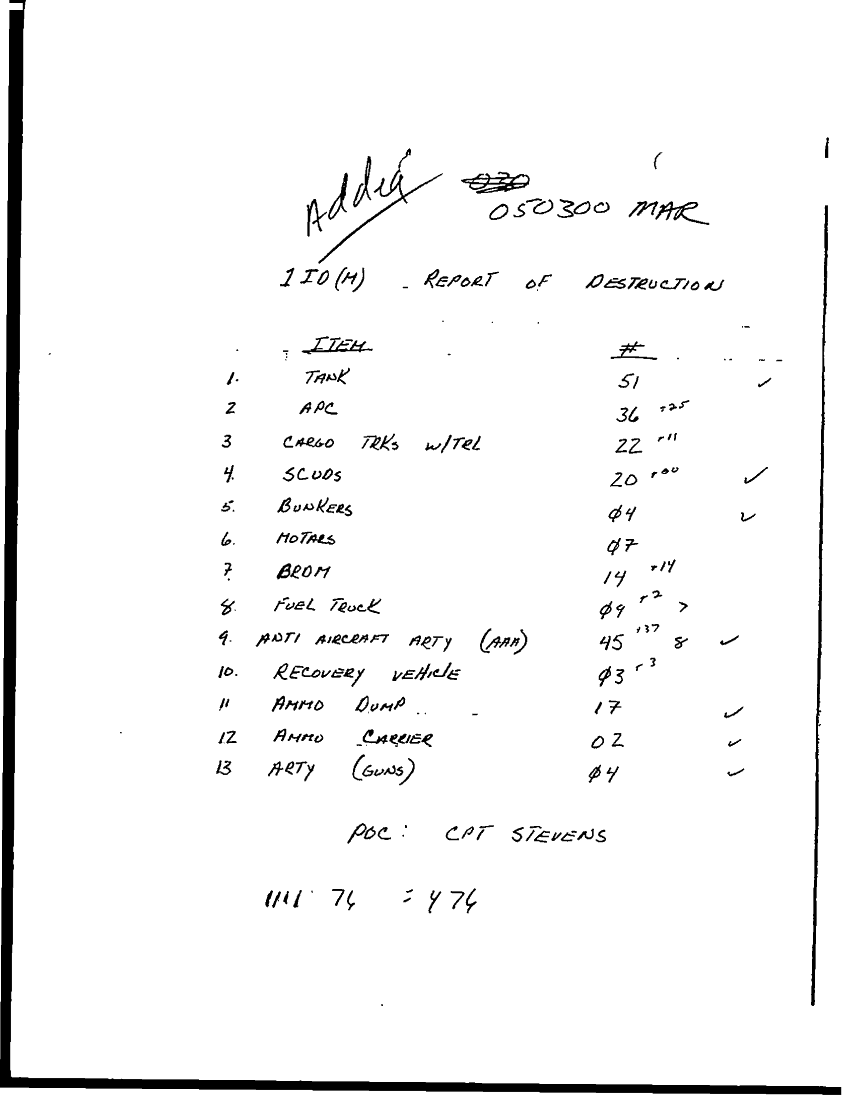 Added
030
050300 MAR
1 ID (M) - REPORT OF DESTRUCTION
ITEM #
1. TANK 51 ✓
2 APC 36 +25
3 CARGO TRKS W/TRL 22 +11
4. SCUDS 20 +00 ✓
5. BUNKERS Ø4 ✓
6. MOTARS Ø7
7. BRDM 14 +14
8. FUEL TRUCK Ø9 +2 >
9. ANTI AIRCRAFT ARTY (AAA) 45 +37 8 ✓
10. RECOVERY VEHICLE Ø3 +3
11 AMMO DUMP 17 ✓
12 AMMO CARRIER 02 ✓
13 ARTY (GUNS) Ø4 ✓
POC: CPT STEVENS
76 = 476